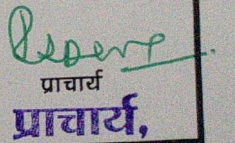 प्राचार्य
प्राचार्य,